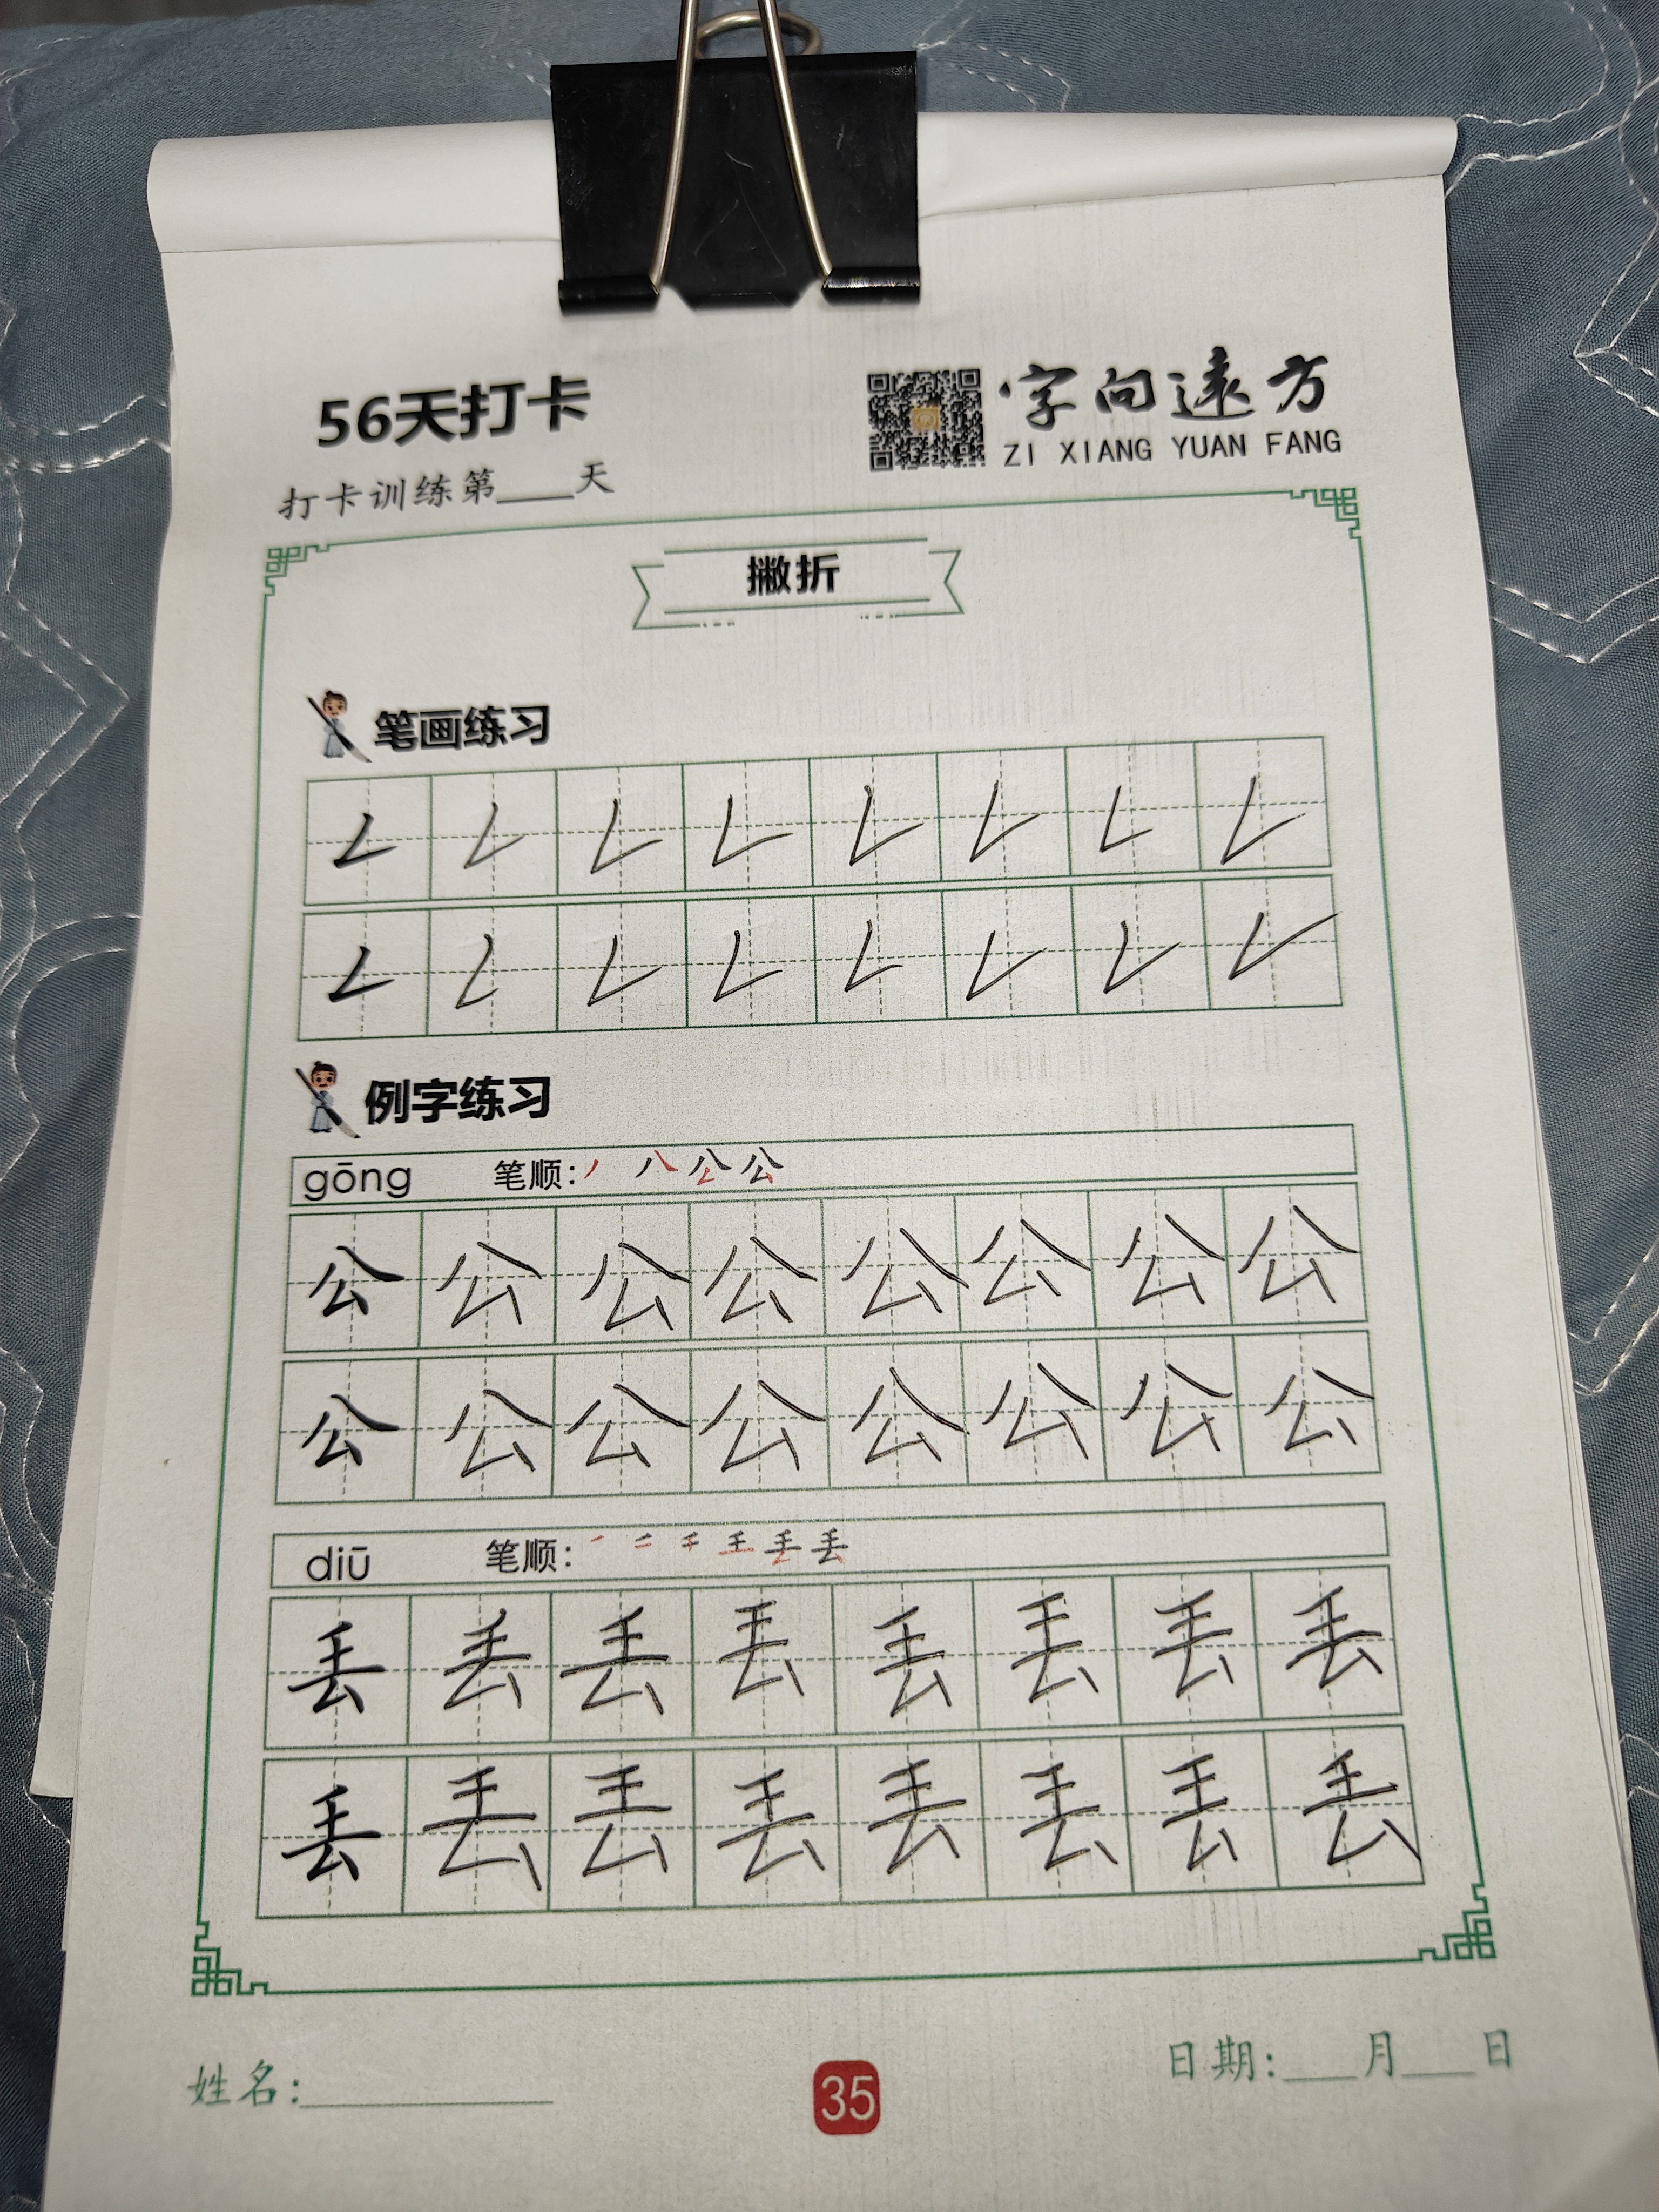 56天打卡
字向遠方
ZI XIANG YUAN FANG
打卡训练第____天
撇折
笔画练习
例字练习
gōng 笔顺:
公 公 公 公 公 公 公 公
公 公 公 公 公 公 公 公
diū 笔顺:
丢 丢 丢 丢 丢 丢 丢 丢
丢 丢 丢 丢 丢 丢 丢 丢
姓名:____________
35
日期:____月____日